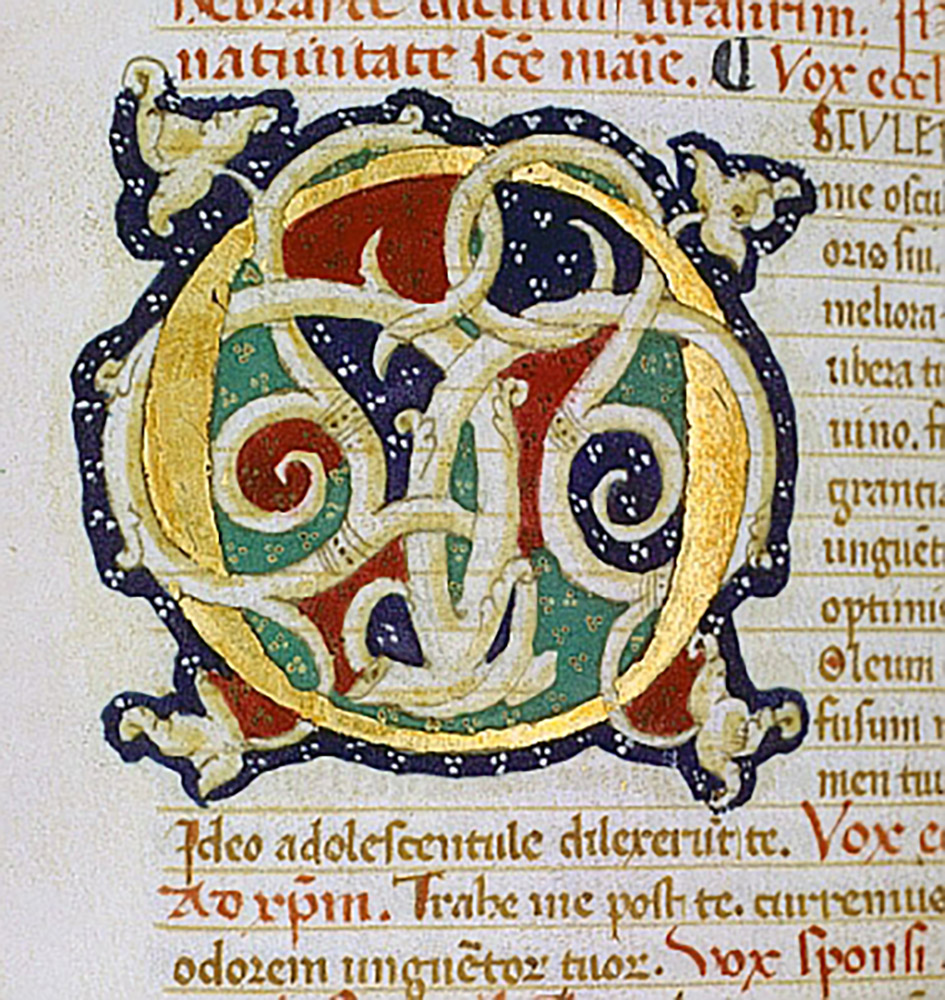 natiuitate sc̄e mar̄ie. ¶ Vox eccl
O SCULE
me oscu
oris sui.
meliora
ubera tu
uino. fr
granti
unguēt
optimi
Oleum
fusum n
men tuu
Ideo adolescentule dilexerūt te. Vox ec
Ad xp̄m. Trahe me post te. curremus
odorem unguētoꝝ tuoꝝ. Vox sponsi